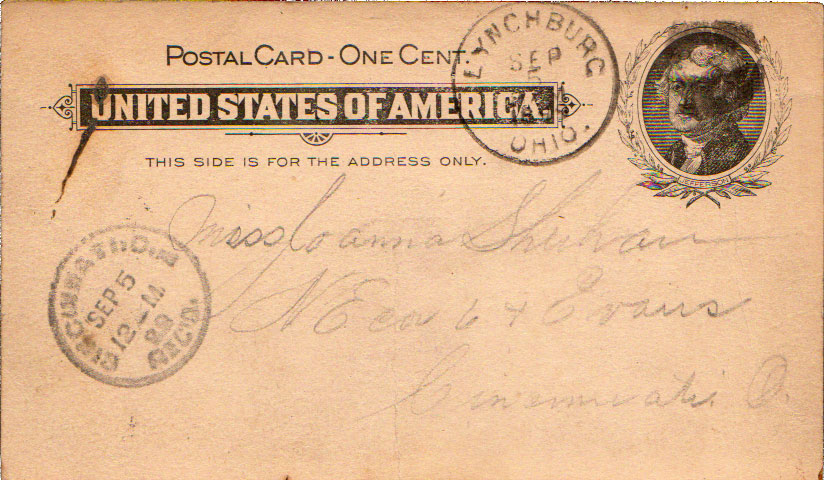 POSTAL CARD - ONE CENT.
UNITED STATES OF AMERICA.
THIS SIDE IS FOR THE ADDRESS ONLY.
LYNCHBURG
SEP
5
OHIO.
JEFFERSON
Miss Joanna Shuhan
N E co 6 & Evans
Cincinnati O.
CINCINNATI, OHIO
SEP 5
12 - M
89
REC'D.